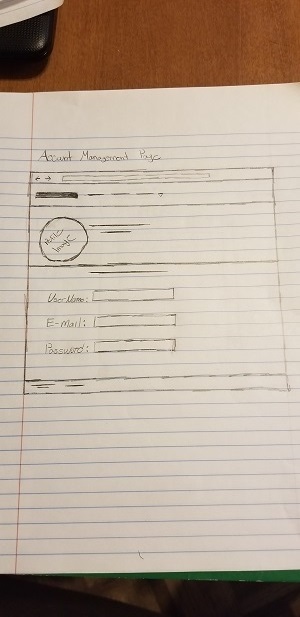 Account Management Page
Profile
Image
UserName:
E-Mail:
Password: